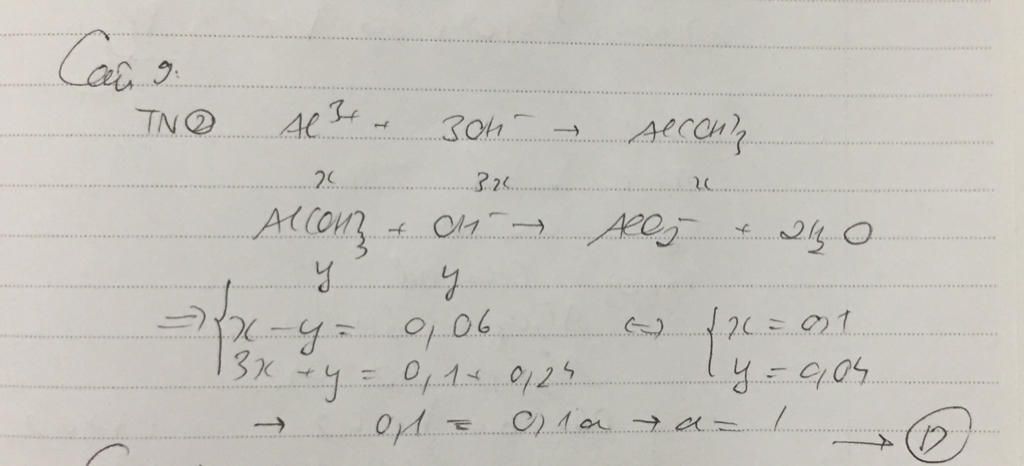 Câu 9:
TN② Al³⁺ + 3OH⁻ → Al(OH)₃
x 3x x
Al(OH)₃ + OH⁻ → AlO₂⁻ + 2H₂O
y y
⇒ { x - y = 0,06 ⇔ { x = 0,1
3x + y = 0,1 + 0,24 y = 0,04
→ 0,1 = 0,1a → a = 1 → Ⓓ